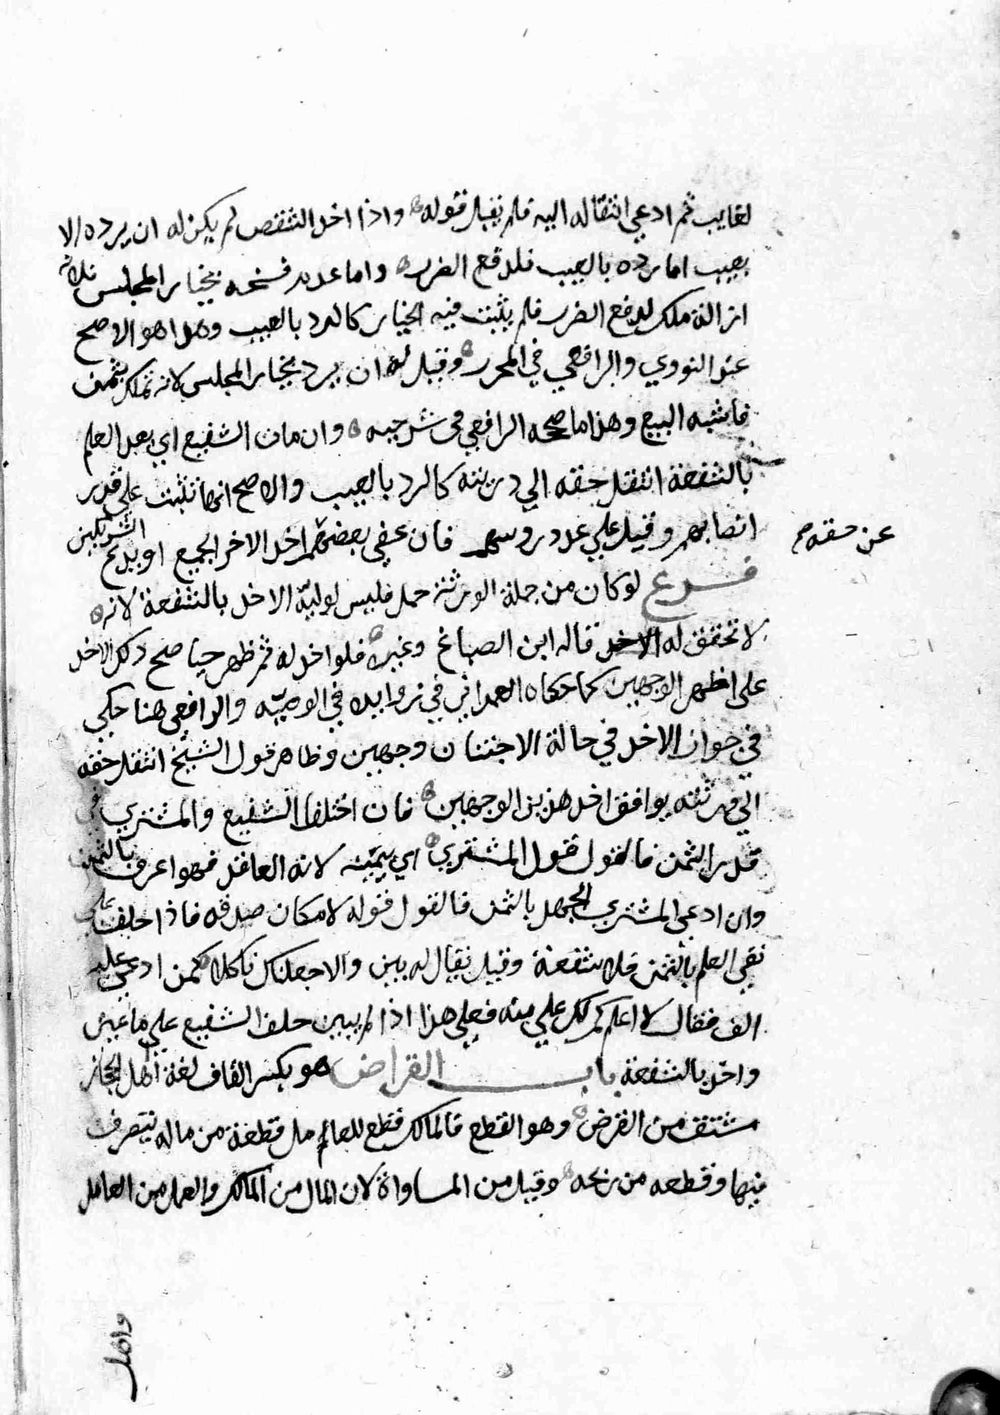 لغايب ثم ادعي انتقاله اليه فلم نقبل قوله واذا اخذ الشقص لم يكن له ان يرده الا
بعيب اما رده بالعيب فلدفع الضرر واما عدم فسخه بخيار المجلس فلانه
ازالة ملك لدفع الضرر فلم يثبت فيه الخيار كالرد بالعيب وهذا هو الاصح
عند النووي والرافعي في المحرر وقيل له ان يرد بخيار المجلس لانه تملك بثمن
فاشبه البيع وهذا ما صححه الرافعي في شرحيه وان مات الشفيع اي بعد العلم
بالشفعة انتقل حقه الي ورثته كالرد بالعيب والاصح انها تثبت علي قدر
انصابهم وقيل علي عدد روسهم فان عفي بعضهم اخذ الاخر الجميع او يدع
عن حقه
الشريكين
فرع لو كان من جملة الورثة حمل فليس لوليه الاخذ بالشفعة لانه
لا تحقق له الاخذ قاله ابن الصباغ وغيره فلو اخذ له ثم ظهر حيا صح ذلك الاخذ
على اظهر الوجهين كما حكاه العمراني في زوايده في الوصيه والرافعي هنا حكي
في جواز الاخذ في حالة الاجتنان وجهين وظاهر قول الشيخ انتقل حقه
الي ورثته يوافق احد هذين الوجهين فان اختلفا الشفيع والمشتري في
قدر الثمن فالقول قول المشتري اي بيمينه لانه العاقد فهو اعرف بالثمن
وان ادعي المشتري الجهل بالثمن فالقول قوله لامكان صدقه فاذا حلف على
نفي العلم بالثمن فلا شفعة وقيل يقال له بين والا جعلناك ناكلا كمن ادعي عليه
الف فقال لا اعلم كم لك علي منه فعلي هذا اذا لم يبين حلف الشفيع علي ما عين
واخذ بالشفعة باب القراض هو بكسر القاف لغة اهل الحجاز
مشتق من القرض وهو القطع فالمالك قطع للعامل قطعة من ماله يتصرف
فيها وقطعه من ربحه وقيل من المساواة لان المال من المالك والعمل من العامل
واهل